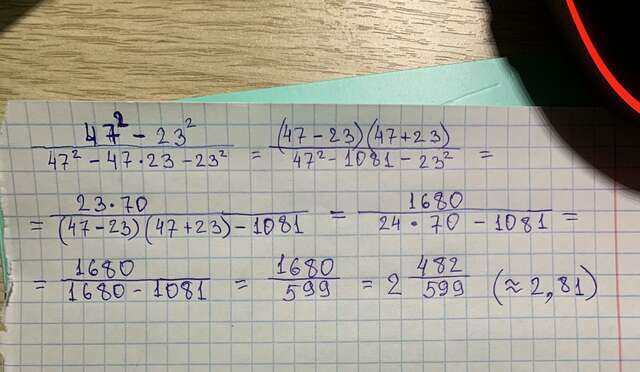 47² - 23² / 47² - 47·23 - 23² = (47 - 23)(47 + 23) / 47² - 1081 - 23² =
= 23·70 / (47 - 23)(47 + 23) - 1081 = 1680 / 24·70 - 1081 =
= 1680 / 1680 - 1081 = 1680 / 599 = 2 482/599 (≈ 2,81)